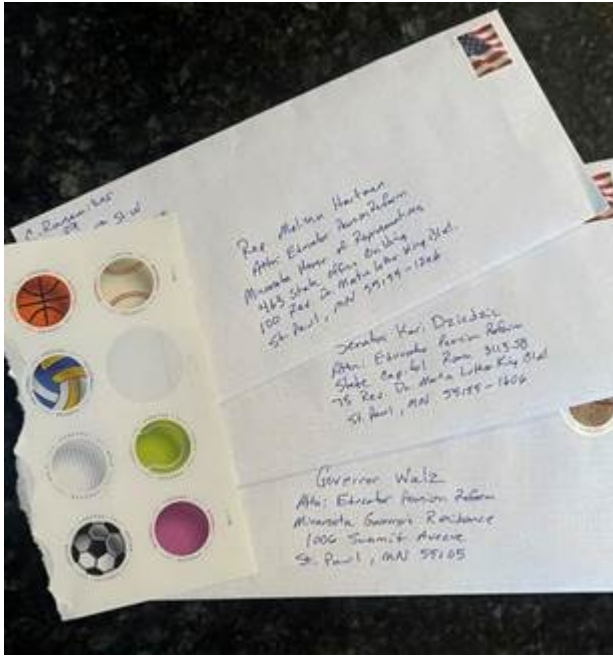 C. 
St. W
Rep. Melissa Hortman
Attn: Educator Pension Reform
Minnesota House of Representatives
463 State Office Building
100 Rev. Dr. Martin Luther King Blvd.
St. Paul, MN 55155-1206
Senator Kari Dziedzic
Attn: Educator Pension Reform
State Capitol Room
75 Rev. Dr. Martin Luther King Blvd
St. Paul, MN 55155-1606
Governor Walz
Attn: Educator Pension Reform
Minnesota Governor's Residence
1006 Summit Avenue
St. Paul, MN 55105